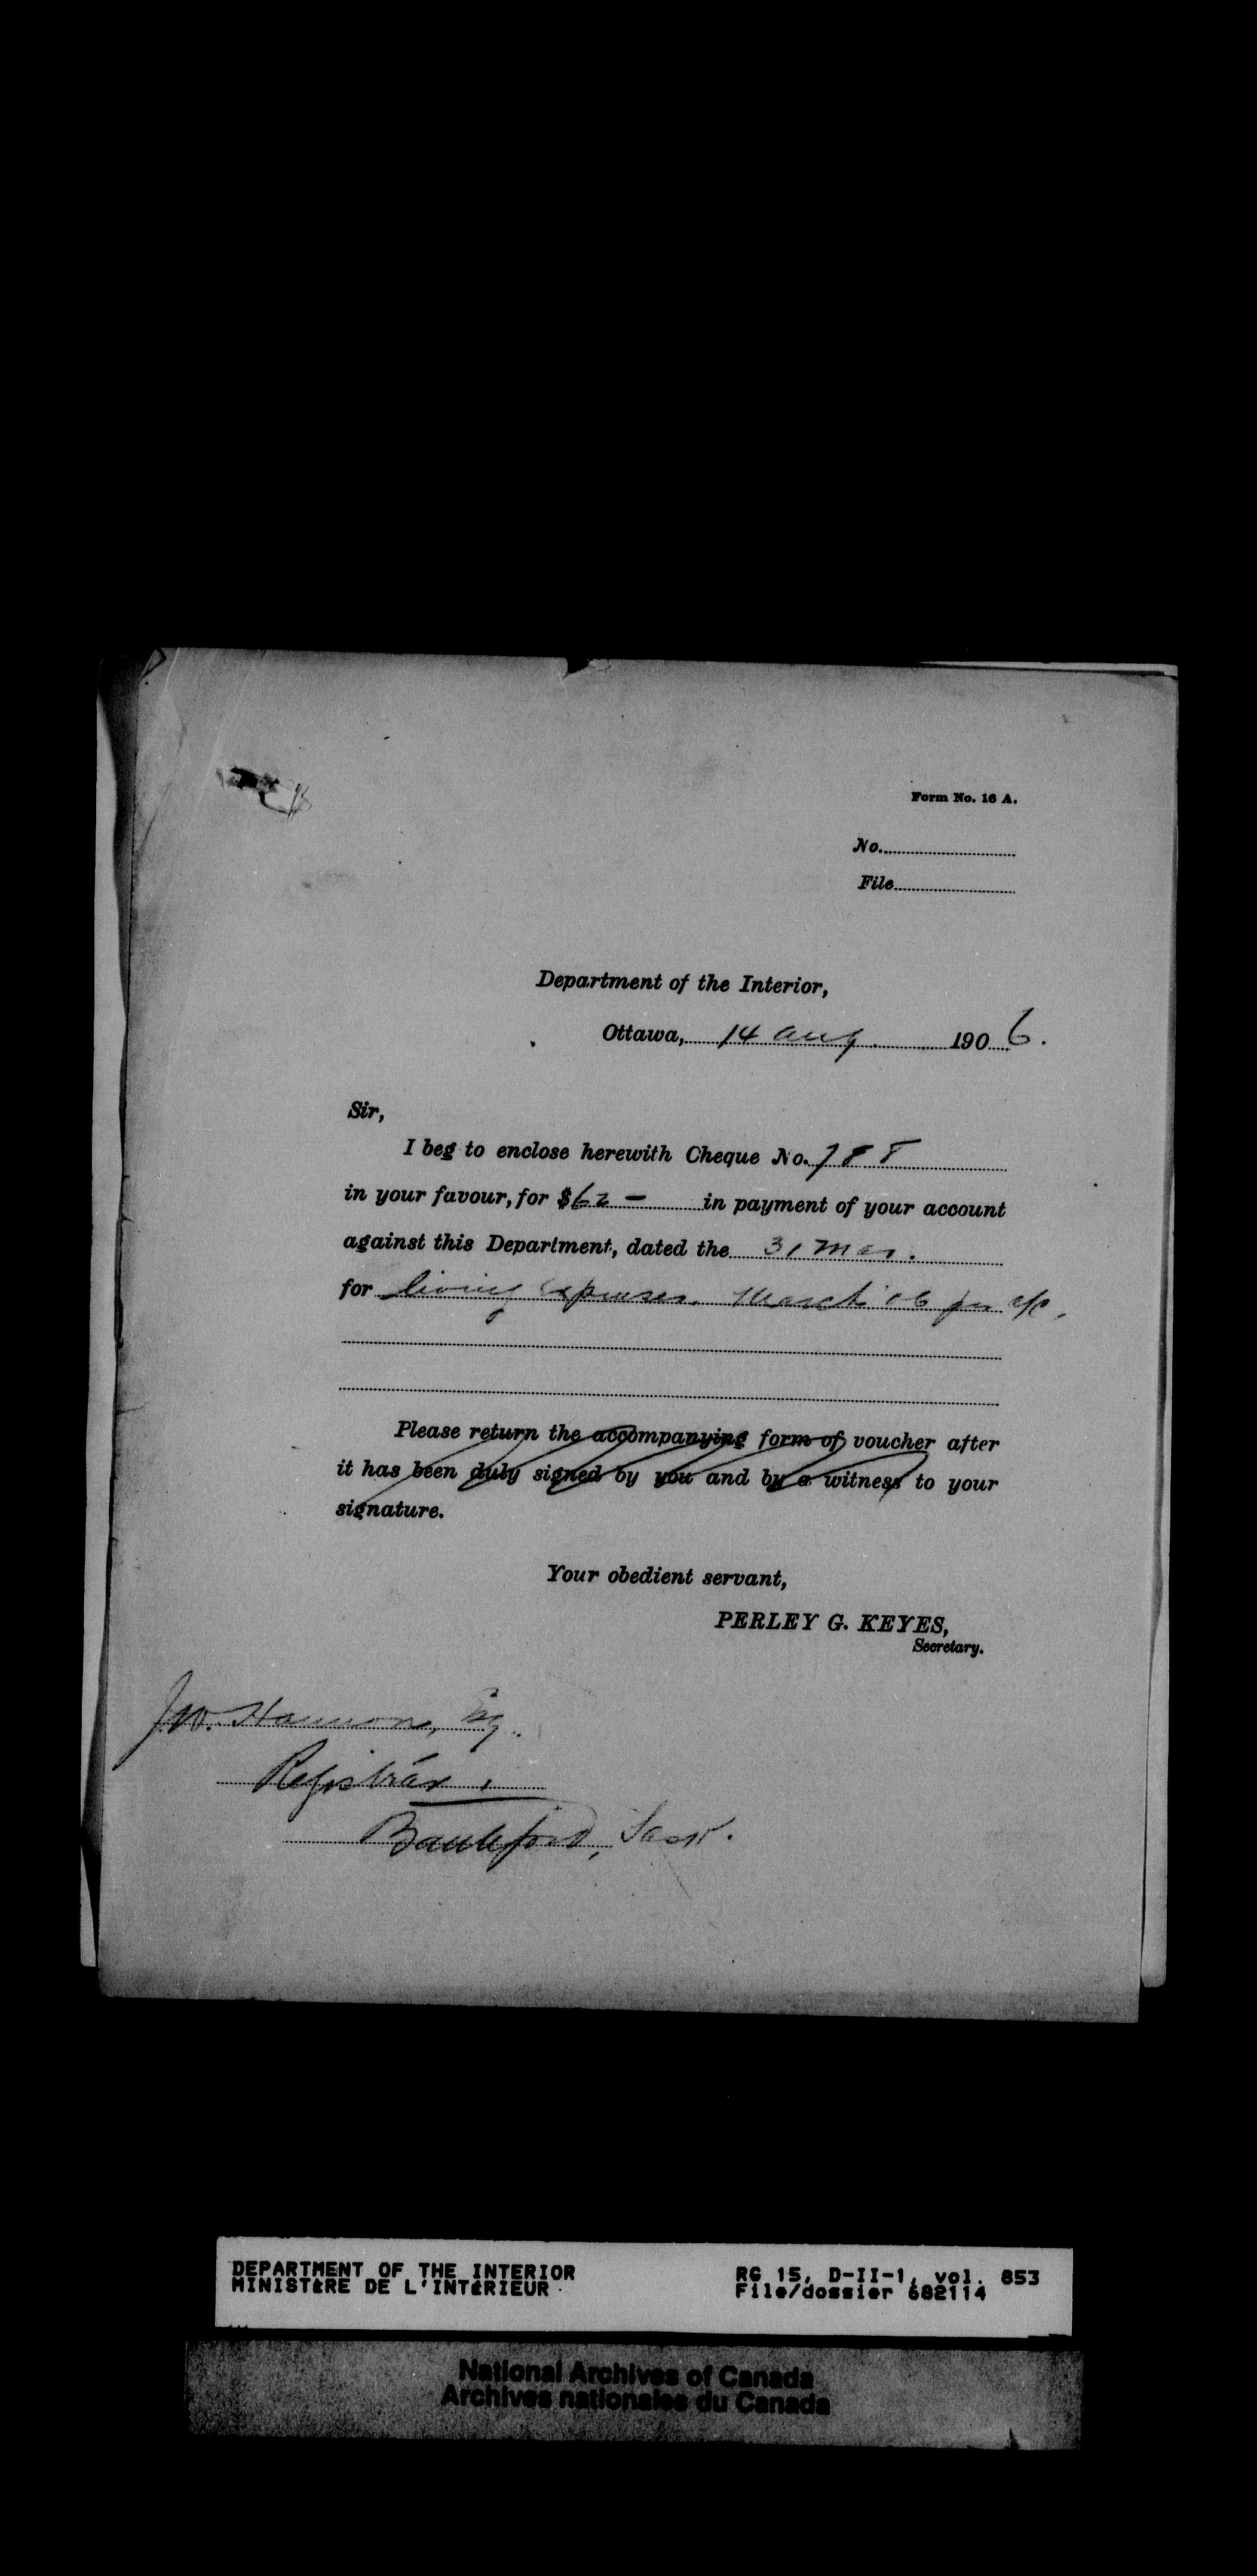 Form No. 16 A.
No.
File
Department of the Interior,
Ottawa, 14 Aug. 1906.
Sir,
I beg to enclose herewith Cheque No. 788
in your favour, for $62 — in payment of your account
against this Department, dated the 31 Mar.
for living expenses. March '06 per a/c.
Please return the accompanying form of voucher after
it has been duly signed by you and by a witness to your
signature.
Your obedient servant,
PERLEY G. KEYES,
Secretary.
J.W. Hannon, Esq.
Registrar,
Battleford, Sask.
DEPARTMENT OF THE INTERIOR RG 15, D-II-1, vol. 853
MINISTÈRE DE L'INTÉRIEUR File/dossier 682114
National Archives of Canada
Archives nationales du Canada